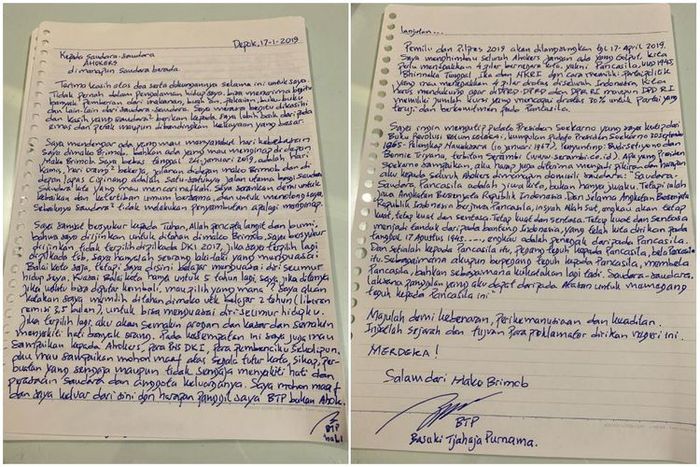 Depok, 17-1-2019
Kepada Saudara-Saudara
AHOKERS
dimanapun Saudara berada.
Terima kasih atas doa serta dukungannya selama ini untuk saya.
Tidak pernah dalam pengalaman hidup saya bisa menerima begitu
banyak pemberian dari makanan, buah dan, pakaian, buku buku
dan lain-lain dari Saudara-Saudara. Saya merasa begitu dikasihi
dan kasih yang Saudara² berikan kepada saya lebih baik dari pada
emas dan perak maupun dibandingkan kekayaan yang besar.
Saya mendengar ada yang mau menyambut hari kebebasan
saya di Mako Brimob, bahkan ada yang mau menginap di depan
Mako Brimob. Saya bebas tanggal 24 januari 2019, adalah hari
kamis, hari orang² bekerja, jalanan didepan Mako Brimob dan di
depan lapas Cipinang adalah satu-satunya jalan utama bagi Saudara-
Saudara kita yang mau mencari nafkah. Saya sarankan demi untuk
kebaikan dan ketertiban umum bersama, dan untuk menolong saya
sebaiknya Saudara² tidak melakukan penyambutan apalagi menginap.
Saya sangat bersyukur kepada Tuhan, Allah pencipta langit dan bumi,
bahwa saya diizinkan untuk ditahan di Mako Brimob. Saya bersyukur
diizinkan tidak terpilih di Pilkada DKI 2017, jika saya terpilih lagi
di Pilkada tsb, saya hanyalah seorang laki-laki yang menguasai
Balai Kota saja, tetapi saya disini belajar menguasai diri seumur
hidup saya. Kuasai Balai Kota hanya untuk 5 tahun lagi. Saya jika ditanya
jika waktu bisa diputar kembali, mau pilih yang mana? Saya akan
katakan saya memilih ditahan di Mako utk belajar 2 tahun (liburan
remisi 3,5 bulan), untuk bisa menguasai diri seumur hidupku.
Jika terpilih lagi, aku akan semakin arogan dan kasar dan semakin
menyakiti hati banyak orang. Pada kesempatan ini saya juga mau
sampaikan kepada Ahokers, para PNS DKI, para pembenciku sekalipun,
aku mau sampaikan mohon maaf atas segala tutur kata, sikap, per-
buatan yang sengaja maupun tidak sengaja menyakiti hati dan
perasaan Saudara dan anggota keluarganya. Saya mohon maaf
dan saya keluar dari sini dgn harapan panggil saya BTP bukan Ahok.
BTP
hal 1
lanjutan...
Pemilu dan Pilpres 2019 akan dilangsungkan tgl 17 April 2019.
Saya menghimbau seluruh Ahokers jangan ada yang Golput. Kita
perlu menegakkan 4 pilar bernegara kita, yakni Pancasila, UUD 1945,
Bhinneka Tunggal Ika dan NKRI dgn cara memiliki Partai politik
yang mau menegakkan 4 pilar diatas di seluruh Indonesia. Kita
harus mendukung agar di DPRD-DPRD dan DPR RI maupun DPD RI
memiliki jumlah kursi yang mencapai diatas 30% untuk Partai yang
teruji dan berkomitmen pada Pancasila.
Saya ingin mengutip Pidato Presiden Soekarno yang saya kutip dari
Buku Revolusi Belum Selesai, kumpulan Pidato Presiden Soekarno 30 September
1965 - Pelengkap Nawaksara (10 januari 1967), Penyunting: Budi Setiyono dan
Bonnie Triyana, penerbit Serambi (www.serambi.co.id). Apa yang Presiden
Soekarno sampaikan, aku harap juga diterima menjadi pikiran dan harapan
aku kepada seluruh Ahokers dimanapun domisili Saudara: Saudara-
Saudara, Pancasila adalah jiwa kita, bukan hanya jiwaku. Tetapi ialah
jiwa Angkatan Bersenjata Republik Indonesia. Dan selama Angkatan Bersenjata
Republik Indonesia berjiwa Pancasila, insyah Allah swt, engkau akan tetap
kuat, tetap kuat dan sentosa. Tetap kuat dan sentosa. Tetap kuat dan sentosa
menjadi tanduk daripada banteng Indonesia, yang telah kita dirikan pada
tanggal 17 Agustus 1945...., engkau adalah penegak daripada Pancasila.
Dan setialah kepada Pancasila itu, Pegang teguh kepada Pancasila, bela Pancasila
itu. Sebagaimana akupun berpegang teguh kepada Pancasila, membela
Pancasila, bahkan sebagaimana kukatakan lagi tadi. Saudara-Saudara,
laksana panggilan yang aku dapat daripada atasan untuk memegang
teguh kepada Pancasila ini.
Majulah demi kebenaran, perikemanusiaan dan keadilan.
Ingatlah sejarah dan tujuan para proklamator dirikan negeri ini.
MERDEKA!
Salam dari Mako Brimob
BTP
Basuki Tjahaja Purnama.